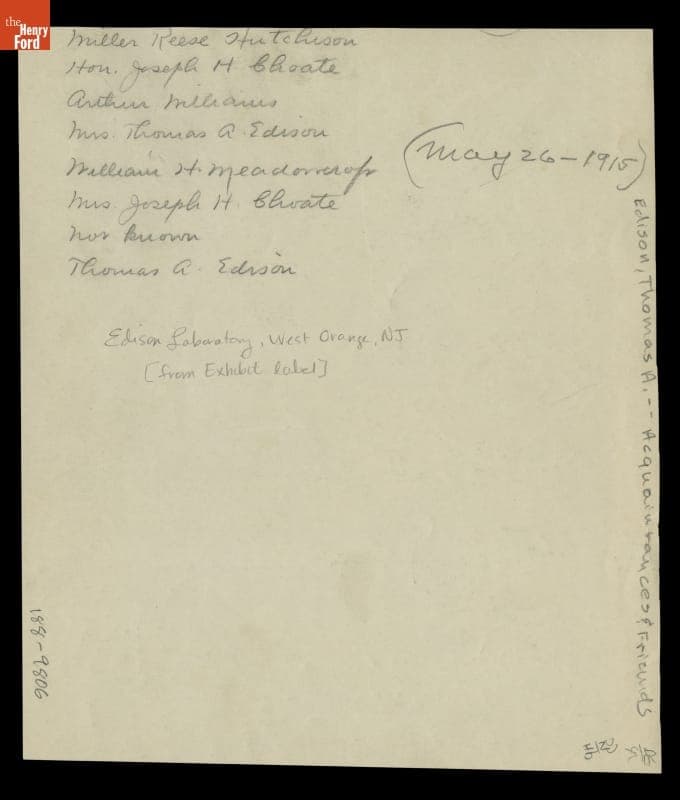 the
Henry
Ford
Miller Reese Hutchison
Hon. Joseph H Choate
Arthur Williams
Mrs. Thomas A. Edison
William H. Meadowcroft
Mrs. Joseph H. Choate
not known
Thomas A. Edison
(May 26-1915)
Edison Laboratory, West Orange, NJ
[from Exhibit label]
Edison, Thomas A. -- Acquaintances & Friends
188-9806